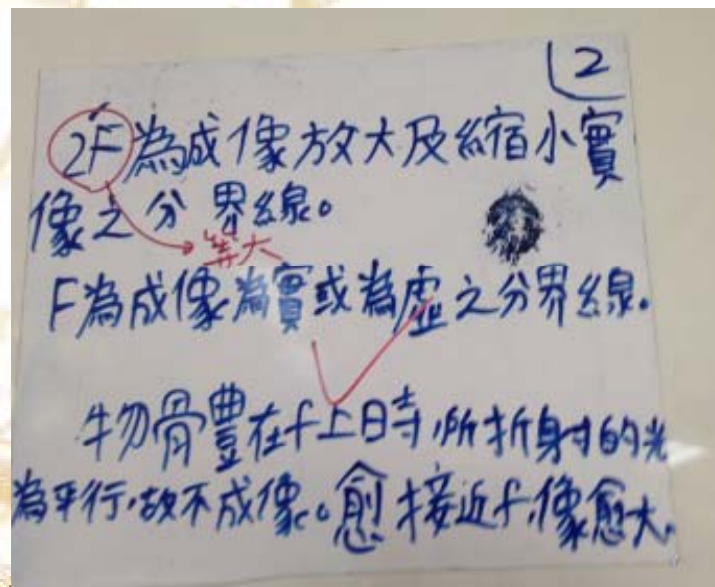 2
2F為成像放大及縮小實
像之分界線。
等大
F為成像為實或為虛之分界線。
物體在f上時,所折射的光
為平行,故不成像。愈接近f,像愈大。